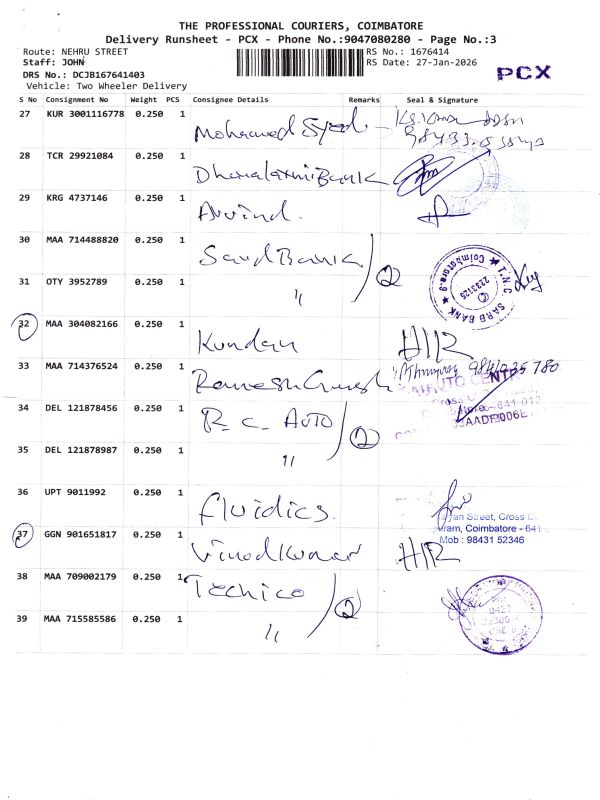 THE PROFESSIONAL COURIERS, COIMBATORE
Delivery Runsheet - PCX - Phone No.:9047080280 - Page No.:3
Route: NEHRU STREET
Staff: JOHN
DRS No.: DCJB167641403
Vehicle: Two Wheeler Delivery
RS No.: 1676414
RS Date: 27-Jan-2026
PCX
S No Consignment No Weight PCS Consignee Details Remarks Seal & Signature
27 KUR 3001116778 0.250 1 Mohamed Syed
28 TCR 29921084 0.250 1 Dhanalaxmi Bank
29 KRG 4737146 0.250 1 Arvind.
30 MAA 714488820 0.250 1 Bank 2
31 OTY 3952789 0.250 1 "
T.N.C SARB BANK ★ Coimbatore-9 ★
2233125
32 MAA 304082166 0.250 1 Kundan H/R
33 MAA 714376524 0.250 1 Ramesh
34 DEL 121878456 0.250 1 R.C. AUTO 2
35 DEL 121878987 0.250 1 "
36 UPT 9011992 0.250 1 fluidics.
Street, Cross
Coimbatore - 641
Mob : 98431 52346
37 GGN 901651817 0.250 1 Vinod Kumar H/R
38 MAA 709002179 0.250 1 Techico 2
39 MAA 715585586 0.250 1 "